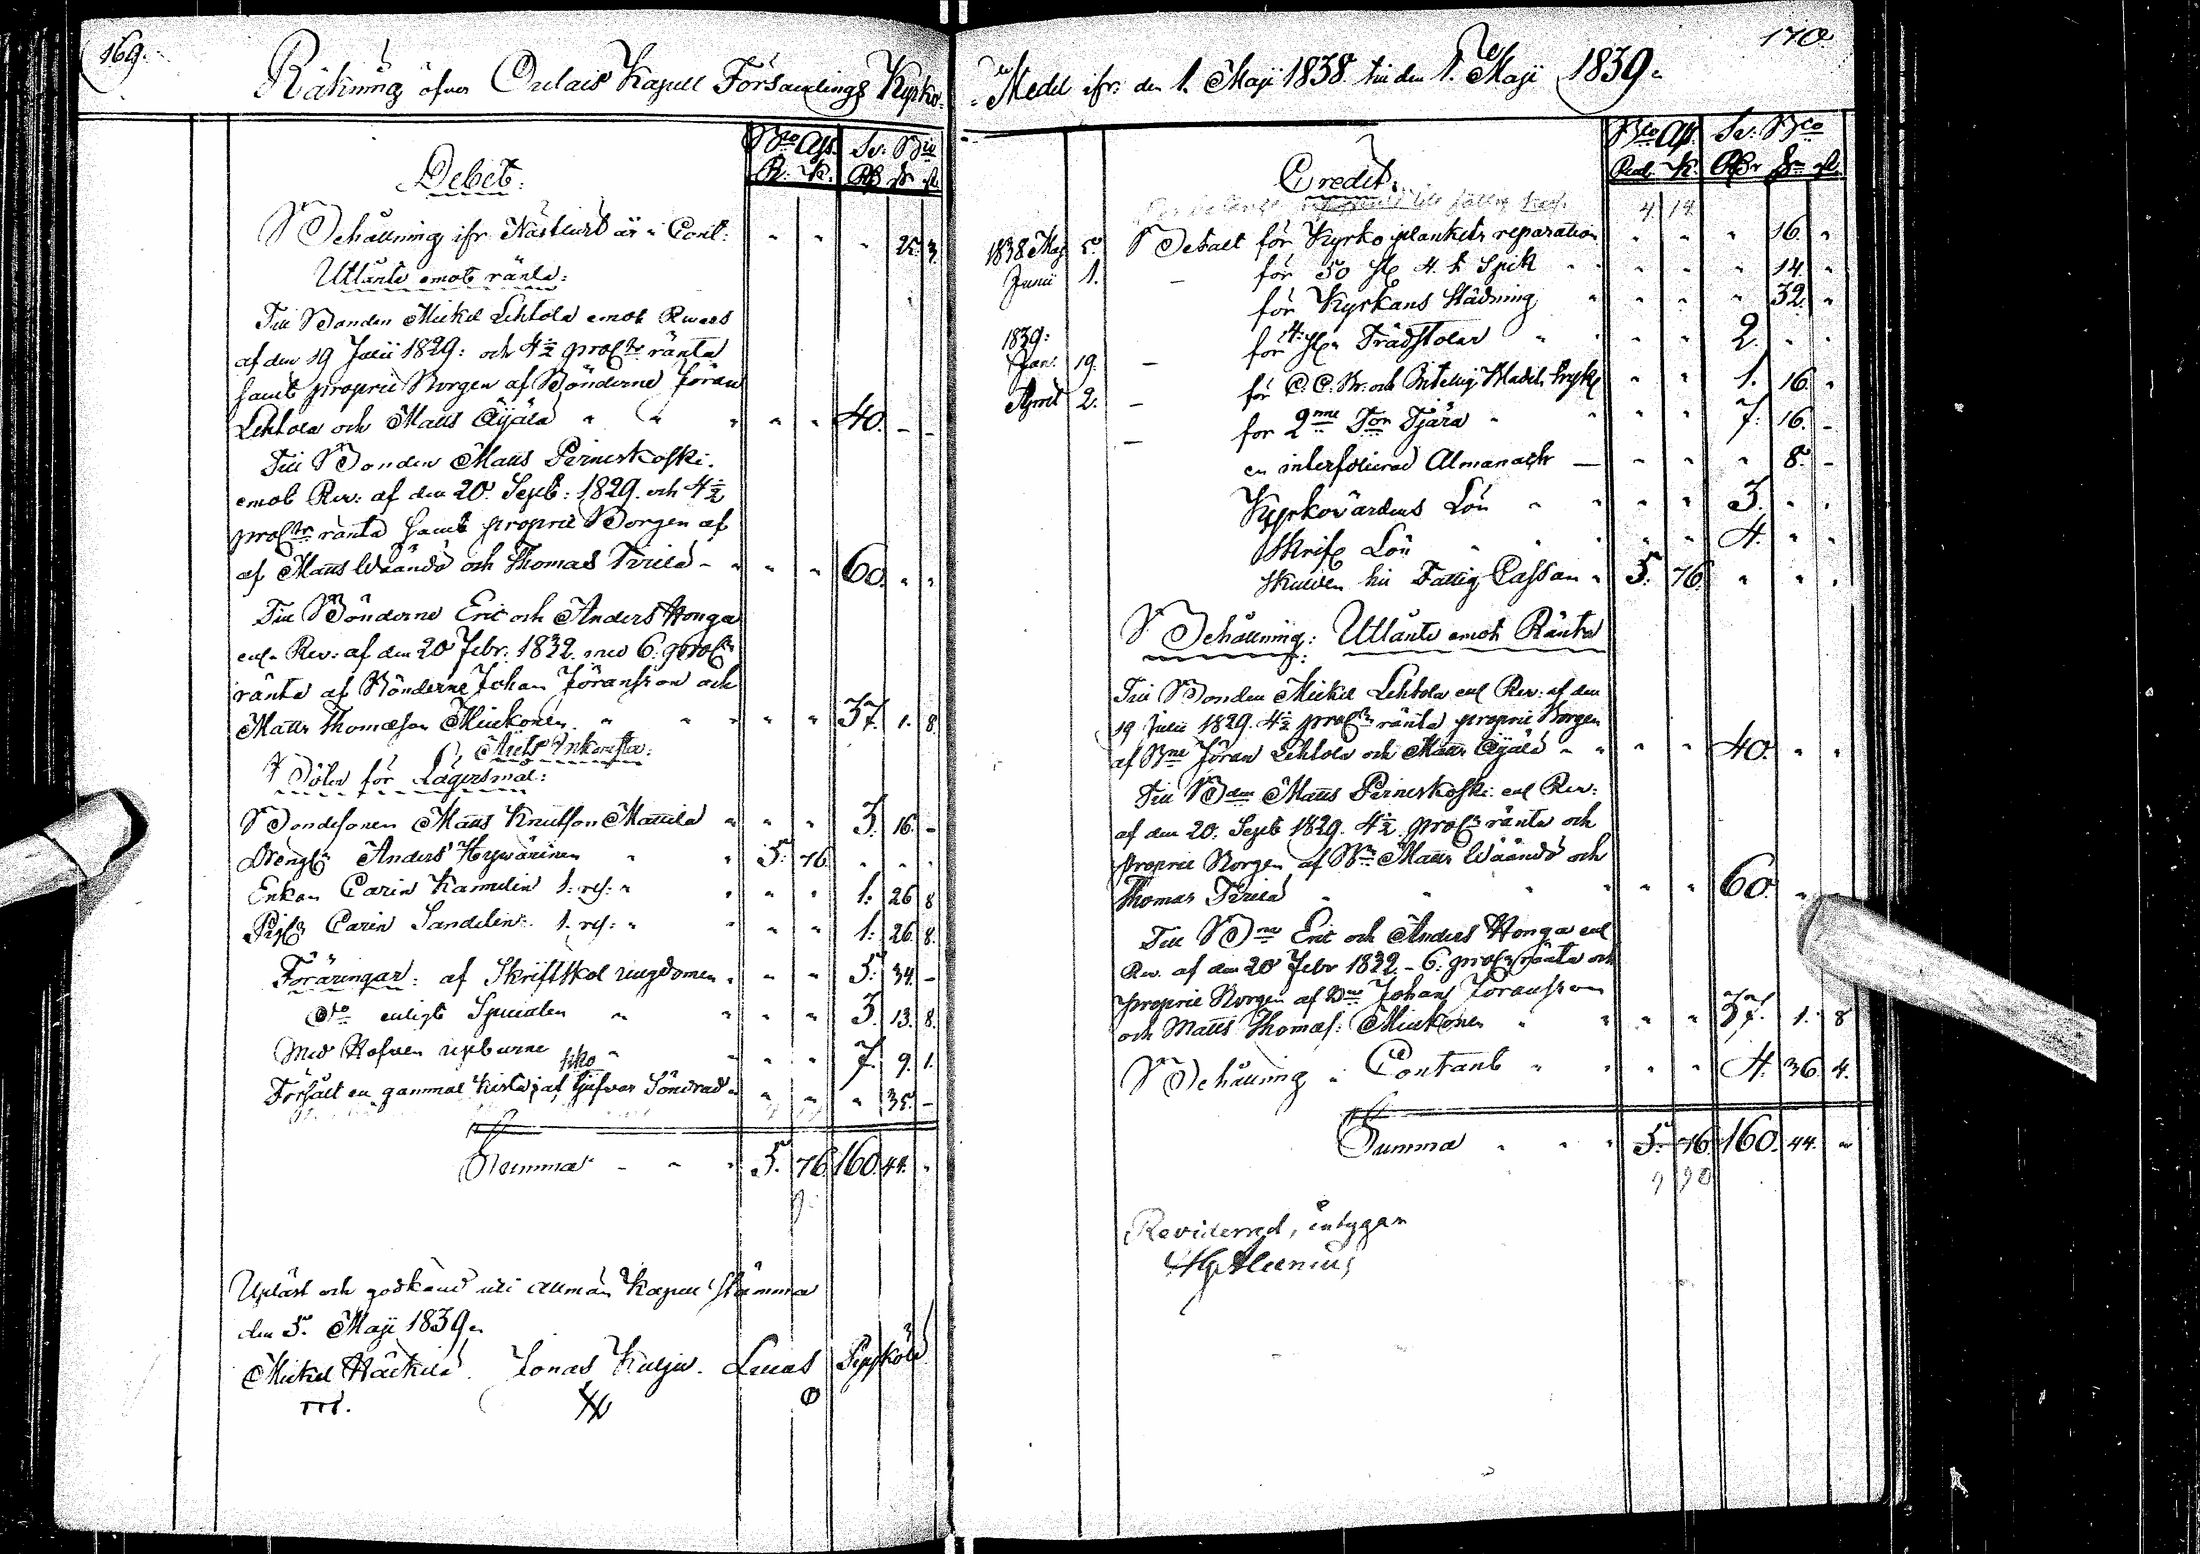 169.
Räkning öfver Oulais Kapell Församlings Kyrko-
Bco Ass. Sv: Bco
R. K. RS s. rst.
Debet:
Behållning ifr. Nästledt år i Cont: " " " 25. 3.
Utlånte emot ränta:
Till Bonden Mickel Lehtola emot Revers
af den 19 Julii 1829: och 4½ proCto ränta
samt proprie Borgen af Bönderne Jöran
Lehtola och Matts Äijälä " " " " " 40. - -
Till Bonden Matts Pirneskoski
emot Rev: af den 20. Sept: 1829. och 4½
proCto ränta samt proprie Borgen af
af Matts Wäändö och Thomas - " " " 60. " "
Till Bönderne Eric och Anders Honga
enl. Rev: af den 20 Febr: 1832. med 6. proC
ränta af Bönderne Johan Jöransson och
Matts Thomasson Miukonen " " " " " 37. 1. 8
Årets Inkomster:
Böter för Lägersmål:
Bondesonen Matts Knutsson Mattila " " " 3. 16. -
Drengn Anders " " 5. 76. " " "
Enkan Carin Kamulin 1: res: " " " " 1. 26 8
Pig. Carin Sandelin: 1. res: " " " " 1. 26. 8.
Föräringar: af Skriftskol ungdomen " " " 5. 34. -
Dto enligt Specialen " " " " 3. 13. 8.
Med Hofven upburne " " " " 7. 9. 1.
Försålt en gammal kista af Gifvar Söndrad " " " " 35. -
Summa - " " 5. 76. 160. 44. "
Upläst och godkänd uti allmän Kapell Stämma
den 5. Maji 1839.
Mickel Häckilä. Jonas Kulju. Lucas Pipskola
170.
Medel ifr: den 1. Maji 1838. till den 1. Maji 1839.
Bco Ass. Sv: Bco
Rub. K. RSr s. rst.
Credit.
4 14
1838 Maj 5. Betalt för Kyrko plankets reparation " " " 16. "
Junii 1. - för 50 st. 4. t. Spik " " " " 14. "
för Kyrkans Städning " " " " 32. "
1839:
Jan. 19. - för 4. st. Trädstolar " " " 2. " "
April 2. - för C. C. Br. och " " 1. 16. "
- för 2ne Tor Tjära " " " 7. 16. -
en interfolierad Almanach - " " " 8. -
Kyrkovärdens Lön " " " " 3. " "
Skrif Lön " " " " 4. " "
Skulden till Fattig Cassan " 5. 76. " " "
Behållning: Utlånte emot Ränta
Till Bonden Mickel Lehtola enl Rev: af den
19 Julii 1829. 4½ proCto ränta proprie Borgen
af Bne Jöran Lehtola och Matts Äijälä " " " " 40. " "
Till Bden Matts Pirneskoski enl Rev:
af den 20. Sept 1829. 4½ proC ränta och
proprie Borgen af Bn Matts Wäändö och
Thomas " " " " " 60. "
Till Bne Eric och Anders Honga enl
Rev. af den 20 Febr 1832. - 6. proC ränta och
proprie Borgen af Bne Johan Jöransson
och Matts Thomas: Miukonen " " " " 37. 1. 8
Behållning i Contant " " " " 4. 36. 4.
Summa " " " 5. 76. 160. 44. "
9 90
Reviderad, intygar